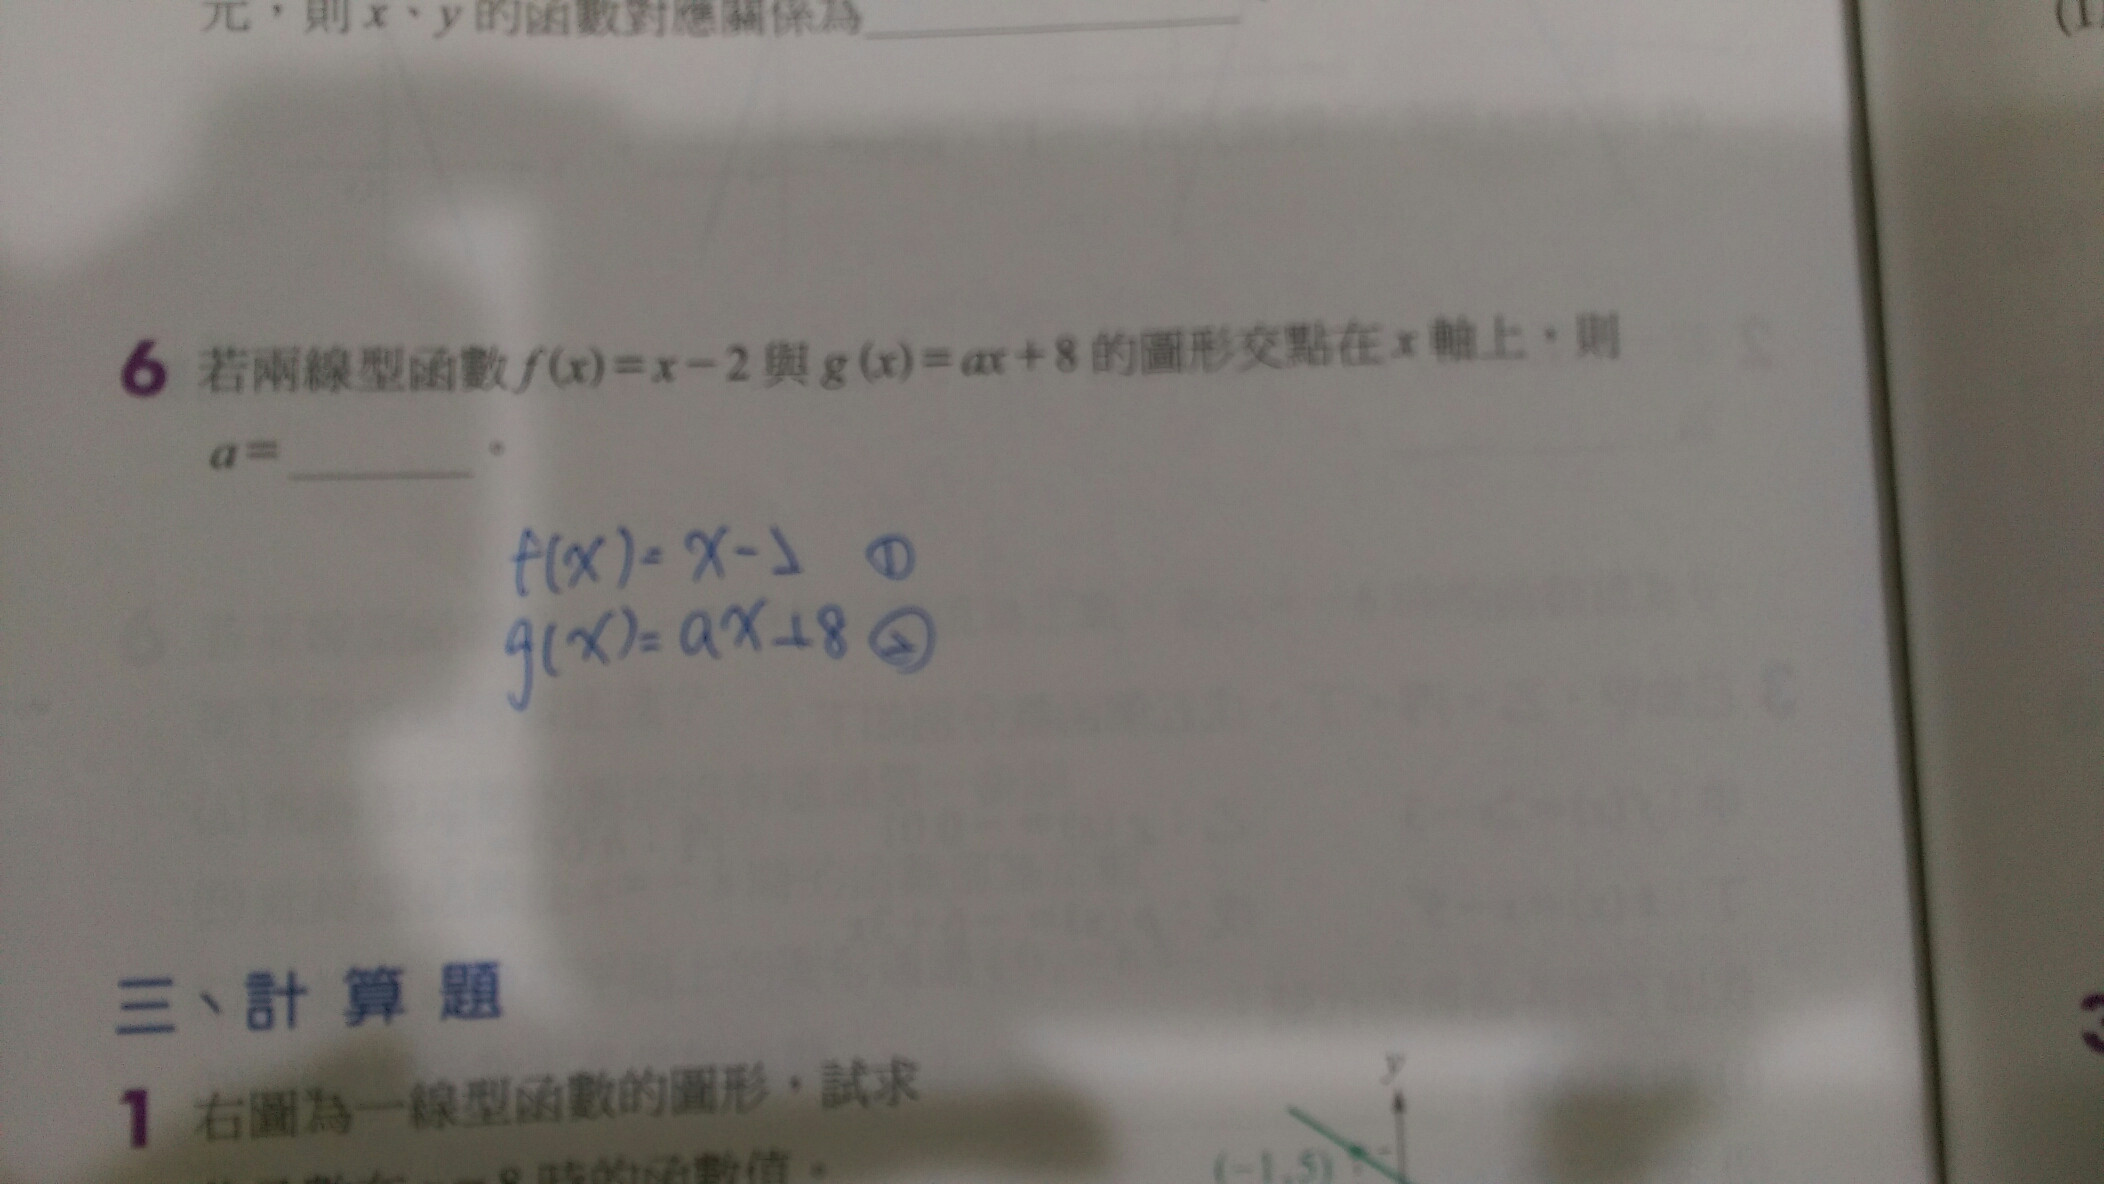 元，則 x、y 的函數對應關係為
6 若兩線型函數 f(x)=x-2 與 g(x)=ax+8 的圖形交點在 x 軸上，則
a=______。
f(x)= x-2 ①
g(x)= ax+8 ②
三、計算題
1 右圖為一線型函數的圖形，試求
y
(-1,5)